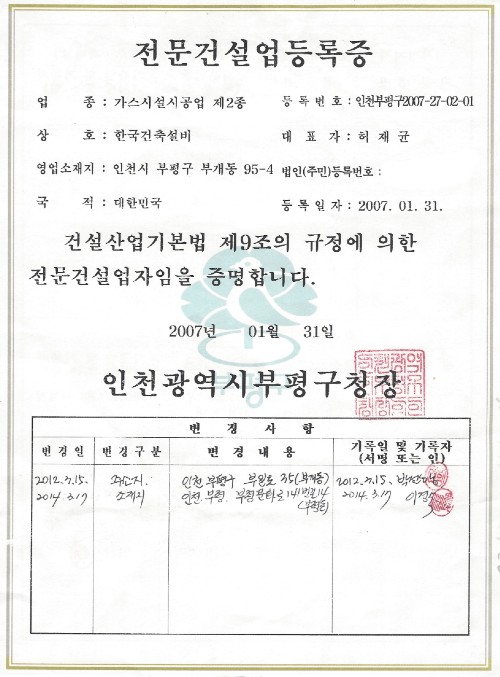 전문건설업등록증
업 종 : 가스시설시공업 제2종 등 록 번 호 : 인천부평구2007-27-02-01
상 호 : 한국건축설비 대 표 자 : 허 재 균
영업소재지 : 인천시 부평구 부개동 95-4 법인(주민)등록번호 :
국 적 : 대한민국 등 록 일 자 : 2007. 01. 31.
건설산업기본법 제9조의 규정에 의한
전문건설업자임을 증명합니다.
2007년 01월 31일
부평구
인천광역시부평구청장
변 경 사 항
변 경 일 변 경 구 분 변 경 내 용 기록일 및 기록자
(서명 또는 인)
2012.7.15. 소재지. 인천 부평구 부일로 35(부개동) 2012.7.15.
2014. 3.17 소재지 인천. 부평. 14 2014. 3.17